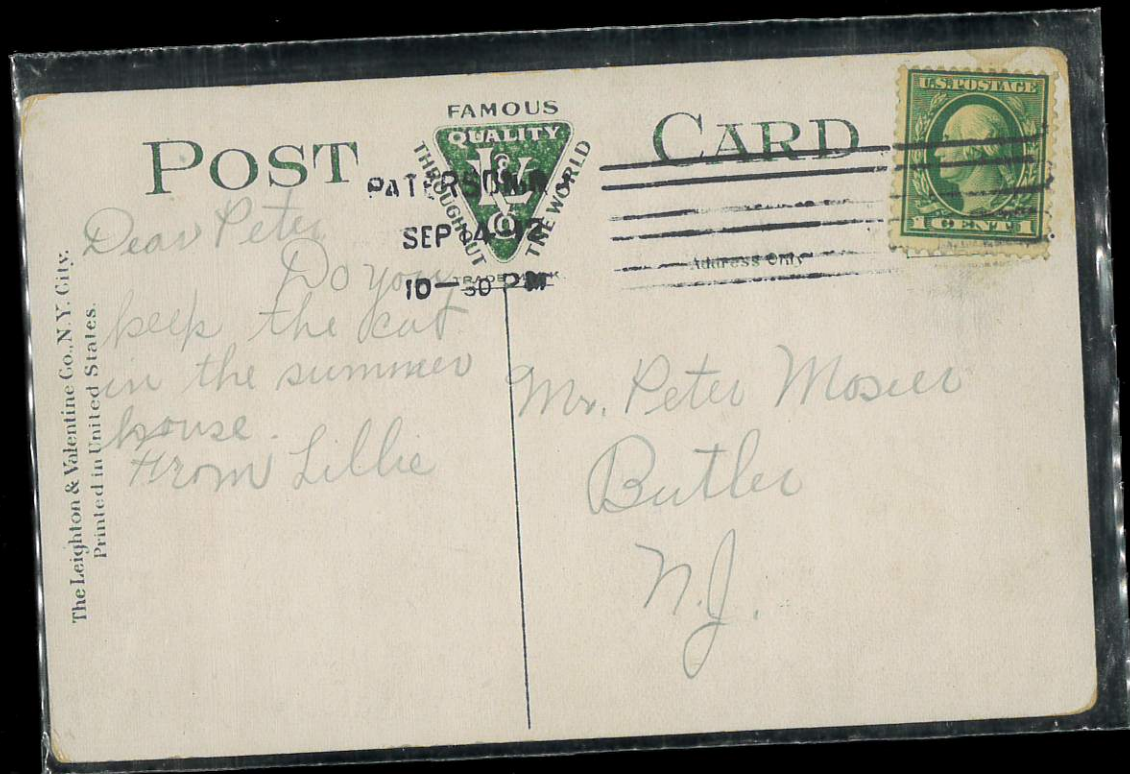 POST CARD
FAMOUS
QUALITY
THROUGHOUT
THE WORLD
L&V Co
TRADE MARK
PATERSON, N.J.
SEP 14 12
10-30 PM
U.S. POSTAGE
1 CENT 1
Address Only
The Leighton & Valentine Co., N.Y. City.
Printed in United States.
Dear Peter
Do you
keep the cat
in the summer
house.
From Lillie
Mr. Peter Mosier
Butler
N.J.